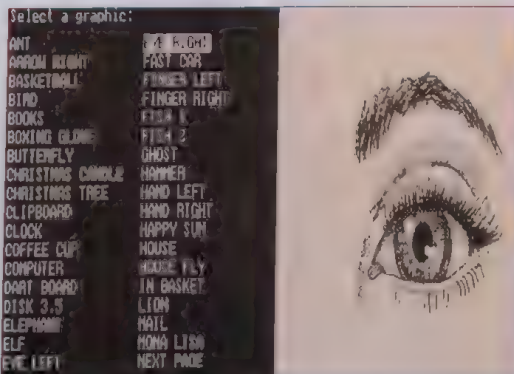 Select a graphic:
ANT
ARROW RIGHT
BASKETBALL
BIRD
BOOKS
BOXING GLOVE
BUTTERFLY
CHRISTMAS CANDLE
CHRISTMAS TREE
CLIPBOARD
CLOCK
COFFEE CUP
COMPUTER
DART BOARD
DISK 3.5
ELEPHANT
ELF
EYE LEFT
EYE RIGHT
FAST CAR
FINGER LEFT
FINGER RIGHT
FISH 1
FISH 2
GHOST
HAMMER
HAND LEFT
HAND RIGHT
HAPPY SUN
HOUSE
HOUSE FLY
IN BASKET
LION
MAIL
MONA LISA
NEXT PAGE